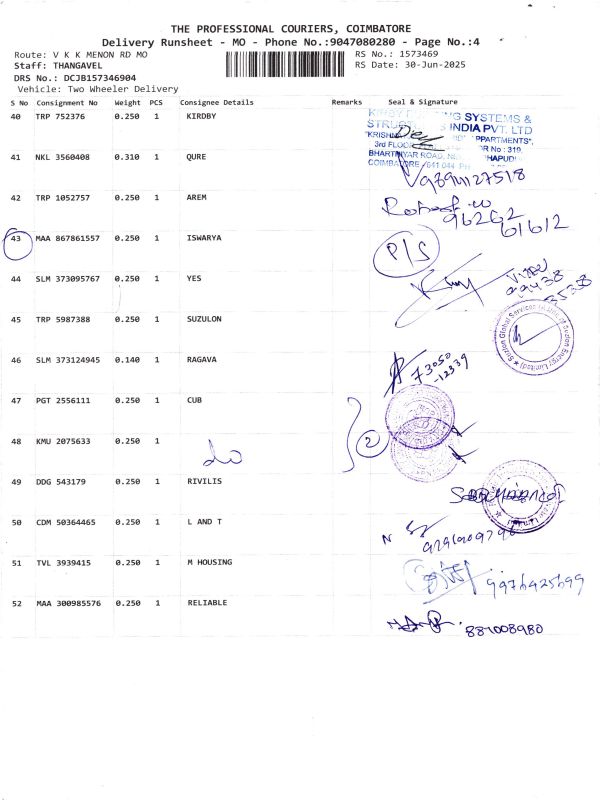 THE PROFESSIONAL COURIERS, COIMBATORE
Delivery Runsheet - MO - Phone No.:9047080280 - Page No.:4
Route: V K K MENON RD MO
RS No.: 1573469
Staff: THANGAVEL
RS Date: 30-Jun-2025
DRS No.: DCJB157346904
Vehicle: Two Wheeler Delivery
S No Consignment No Weight PCS Consignee Details Remarks Seal & Signature
40 TRP 752376 0.250 1 KIRDBY
SYSTEMS &
INDIA PVT. LTD
APPARTMENTS",
3rd FLOOR
OR No : 319,
BHARTHIYAR ROAD,
COIMBATORE 641 044
41 NKL 3560408 0.310 1 QURE
42 TRP 1052757 0.250 1 AREM
96262
61612
43 MAA 867861557 0.250 1 ISWARYA P/S
44 SLM 373095767 0.250 1 YES
99438
45 TRP 5987388 0.250 1 SUZULON
46 SLM 373124945 0.140 1 RAGAVA
73050
-12339
47 PGT 2556111 0.250 1 CUB
2
48 KMU 2075633 0.250 1 do
49 DDG 543179 0.250 1 RIVILIS
50 CDM 50364465 0.250 1 L AND T
51 TVL 3939415 0.250 1 M HOUSING
9976425699
52 MAA 300985576 0.250 1 RELIABLE
881008980